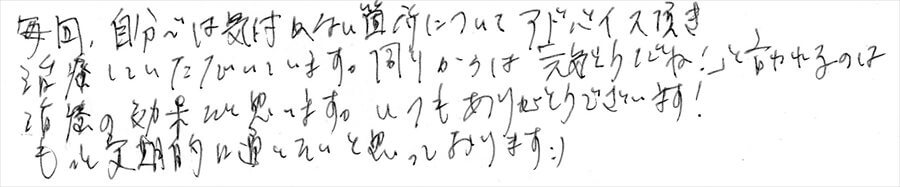 毎回、自分では気付かない箇所についてアドバイス頂き
治療していただいています。周りからは「元気そうだね!」と言われるのは
治療の効果だと思います。いつもありがとうございます!
もっと定期的に通いたいと思っております:)